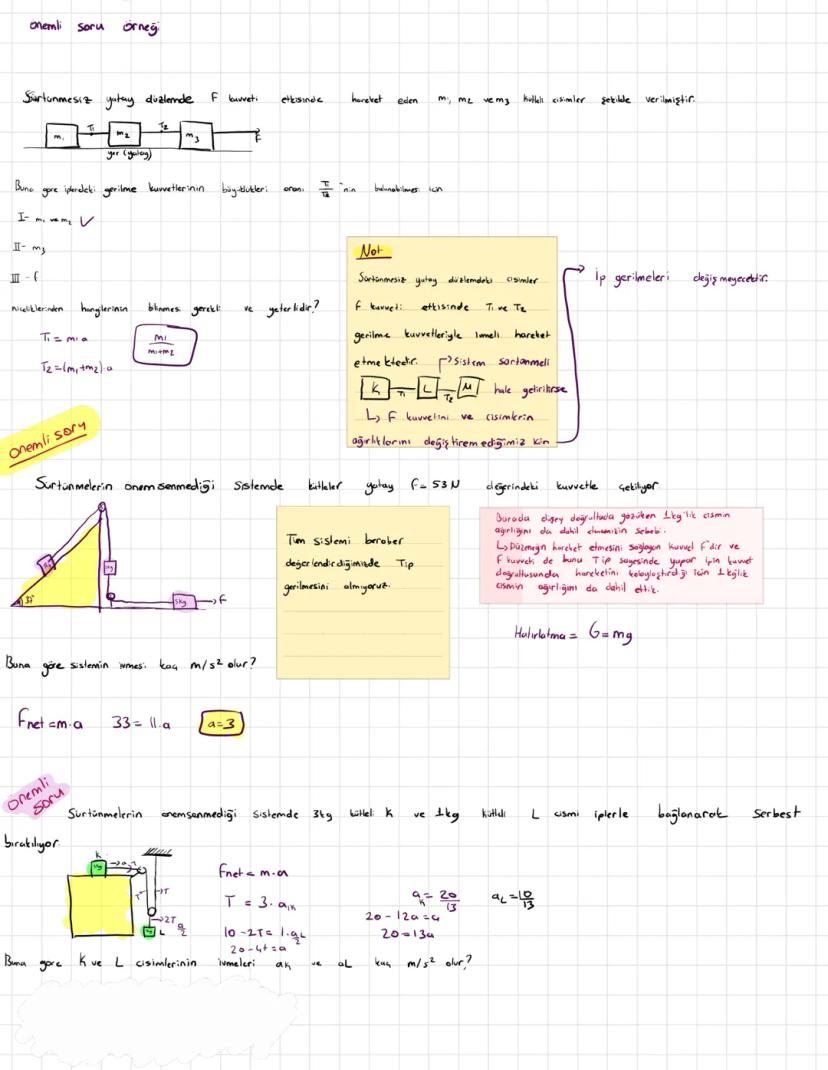 onemli soru örneği
Sürtünmesiz yatay düzlemde F kuvveti etkisinde hareket eden m₁, m₂ ve m₃ kütleli cisimler şekilde verilmiştir.
m₁ T₁ m₂ T₂ m₃ F
yer (yatay)
Buna göre iplerdeki gerilme kuvvetlerinin büyüklükleri oranı T₁/T₂ 'nin bulunabilmesi için
I- m₁ ve m₂ ✓
II- m₃
III - f
niceliklerinden hangilerinin bilinmesi gerekli ve yeterlidir?
T₁ = m₁.a
T₂ = (m₁+m₂).a
m₁/m₁+m₂
Not
Sürtünmesiz yatay düzlemdeki cisimler
f kuvveti etkisinde T₁ ve T₂
gerilme kuvvetleriyle ivmeli hareket
etmektedir. → Sistem sürtünmeli
K T₁ L T₂ M hale getirilirse
↳ F kuvvetini ve cisimlerin
ağırlıklarını değiştiremediğimiz için
→ İp gerilmeleri değişmeyecektir.
onemli soru
Sürtünmelerin onemsenmediği sistemde kütleler yatay f= 53N değerindeki kuvvetle çekiliyor
37
5kg → F
Tüm sistemi beraber
değerlendirdiğimizde Tip
gerilmesini almıyoruz.
Burada düşey doğrultuda gözüken 1kg'lık cismin
ağırlığını da dahil etmemizin sebebi:
↳ Düzeneğin hareket etmesini sağlayan kuvvet F'dir ve
F kuvveti de bunu Tip sayesinde yapar İpin kuvvet
doğrultusunda hareketini kolaylaştırdığı için 1kg'lık
cismin ağırlığını da dahil ettik.
Hatırlatma = G=mg
Buna göre sistemin ivmesi kaç m/s² olur?
Fnet = m.a 33 = 11.a a=3
onemli soru
Sürtünmelerin onemsenmediği sistemde 3kg kütleli K ve 1kg kütleli L cismi iplerle bağlanarak serbest
bırakılıyor.
K
→T
→2T
L a/2
Fnet = m.a
T = 3.aₖ
10 - 2T = 1.aL
20 - 4t = a
aₖ = 20/13
20 - 12a = a
20 = 13a
aL = 10/13
Buna gore K ve L cisimlerinin ivmeleri aₖ ve aL kaç m/s² olur?